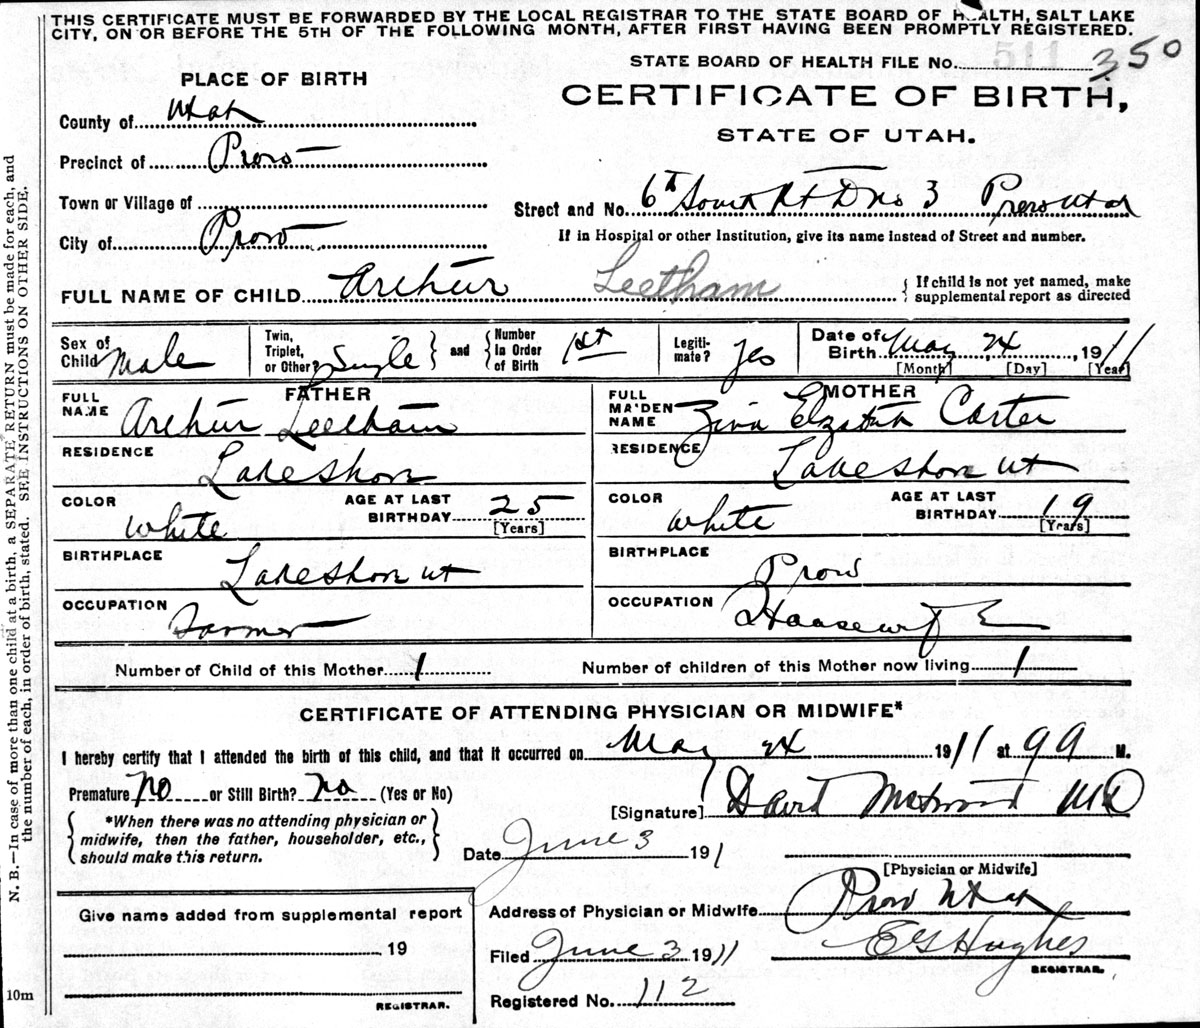 THIS CERTIFICATE MUST BE FORWARDED BY THE LOCAL REGISTRAR TO THE STATE BOARD OF HEALTH, SALT LAKE
CITY, ON OR BEFORE THE 5TH OF THE FOLLOWING MONTH, AFTER FIRST HAVING BEEN PROMPTLY REGISTERED.
STATE BOARD OF HEALTH FILE No. 511 350
PLACE OF BIRTH
CERTIFICATE OF BIRTH,
STATE OF UTAH.
County of Utah
Precinct of Provo
Town or Village of
City of Provo
Street and No. 6th South Rt D No 3 Provo Utah
If in Hospital or other Institution, give its name instead of Street and number.
FULL NAME OF CHILD Arthur Leetham { If child is not yet named, make
supplemental report as directed
Sex of Child Male Twin, Triplet, or Other? Single } and { Number In Order of Birth 1st Legiti-mate? Yes Date of Birth May 24, 1911
[Month] [Day] [Year]
FATHER
FULL NAME Arthur Leetham
RESIDENCE Lakeshore
COLOR White AGE AT LAST BIRTHDAY 25 [Years]
BIRTHPLACE Lakeshore Ut
OCCUPATION Farmer
MOTHER
FULL MAIDEN NAME Zina Elzabeth Carter
RESIDENCE Lakeshore Ut
COLOR White AGE AT LAST BIRTHDAY 19 [Years]
BIRTHPLACE Provo
OCCUPATION Housewife
Number of Child of this Mother 1 Number of children of this Mother now living 1
CERTIFICATE OF ATTENDING PHYSICIAN OR MIDWIFE*
I hereby certify that I attended the birth of this child, and that it occurred on May 24 1911 at 9 M.
Premature No or Still Birth? No (Yes or No)
[Signature] David MD
{ *When there was no attending physician or
midwife, then the father, householder, etc.,
should make this return. }
Date June 3 1911
[Physician or Midwife]
Give name added from supplemental report
19
REGISTRAR.
Address of Physician or Midwife Provo Utah
Filed June 3 1911 E G Hughes
REGISTRAR.
Registered No. 112
N. B.—In case of more than one child at a birth, a SEPARATE RETURN must be made for each, and
the number of each, in order of birth, stated. SEE INSTRUCTIONS ON OTHER SIDE.
10m